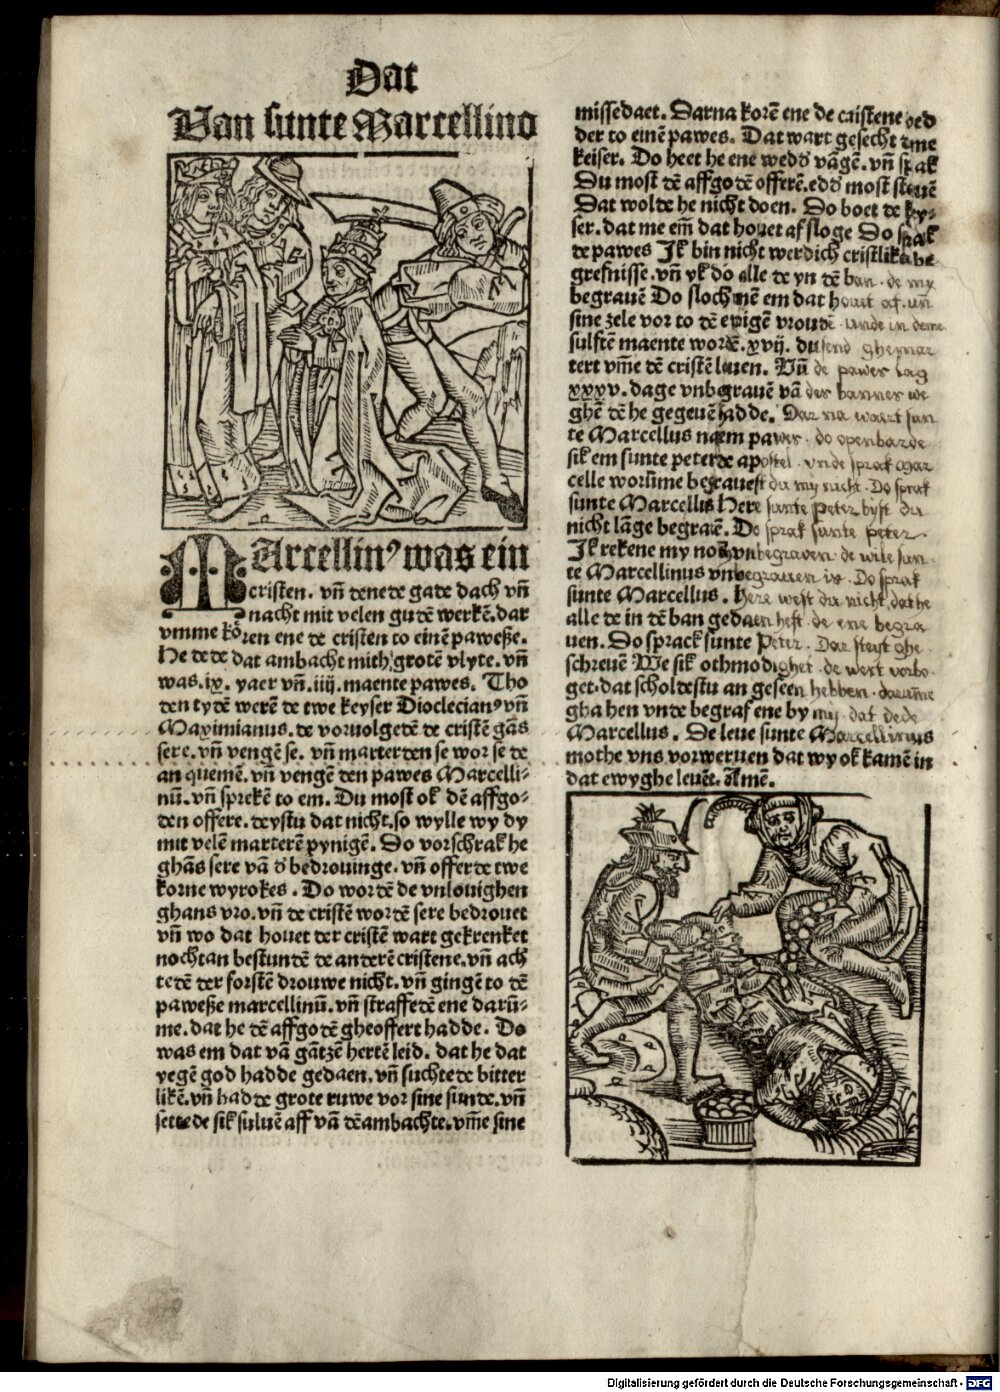 Dat
Van sunte Marcellino
MArcellinꝰ was ein
cristen. vñ denede gade dach vñ
nacht mit velen gudē werkē. dar
vmme korēn ene de cristen to einē paweße.
He dede dat ambacht mith grotē vlyte. vñ
was. ix. yaer vñ. iiij. maente pawes. Tho
den tydē werē de twe keyser Dioclecianꝰ vñ
Maximianus. de voruolgedē de cristē gās
sere. vñ vengē se. vñ marterden se wor se de
an quemē. vñ vengē den pawes Marcelli⸗
nū. vñ sprekē to em. Du most ok dē affgo⸗
den offere. deystu dat nicht. so wylle wy dy
mit velē marterē pynigē. Do vorschrak he
ghās sere vā d' bedrouinge. vñ offerde twe
korne wyrokes. Do wordē de vnlouighen
ghans vro. vñ de cristē wordē sere bedrouet
vñ wo dat houet der cristē wart gekrenket
nochtan bestundē de anderē cristene. vñ ach
tedē der forstē drouwe nicht. vñ gingē to dē
paweße marcellinū. vñ straffedē ene darū⸗
me. dat he dē affgodē gheoffert hadde. Do
was em dat vā gātzē hertē leid. dat he dat
yegē god hadde gedaen. vñ suchtede bitter
likē. vñ hadde grote ruwe vor sine sunde. vñ
settede sik suluē aff vā dē ambachte. vm̄e sine
missedaet. Darna korē ene de cristene
der to einē pawes. Dat wart gesecht dme
keiser. Do heet he ene wedd' vāgē. vñ sprak
Du most dē affgodē offerē. edd' most steruē
Dat wolde he nicht doen. Do boet de key⸗
ser. dat me em̄ dat houet af sloge Do sprak
de pawes Ik bin nicht werdich cristlike be
grefnisse. vñ yk do alle de yn dē ban. de my
begrauē Do sloch mē em dat houet af. vñ
sine zele vor to dē ewigē vroudē. unde in deme
sulftē maente wordē. xvij. dusend ghemar
tert vm̄e dē cristē louen. Vñ de pawes lag
xxxv. dage vnbegrauē vā der banner we
ghē dē he gegeuē hadde. Dar na waart sun
te Marcellus naem pawes. do openbarde
sik em sunte peter de apostel. vnde sprack Mar
celle worūme begrauest du my nicht. Do sprak
sunte Marcellus Here sunte Peter byst du
nicht lāge begrauē. Do sprak sunte peter.
Ik rekene my noch vnbegraven. de wile sun
te Marcellinus vnbegrauen is. Do sprak
sunte Marcellus. Here west du nicht, dat he
alle de in dē ban gedaen heft. de ene begra
uen. Do sprack sunte Peter. Dar steyt ghe
schreuē We sik othmodighet. de wert vorho
get. dat scholdestu an geseen hebben. darūme
gha hen vnde begraf ene by my. dat dede
Marcellus. De leue sunte Marcellinus
mothe vns vorweruen dat wy ok kamē in
dat ewyghe leuēt. Amē.
Digitalisierung gefördert durch die Deutsche Forschungsgemeinschaft - DFG